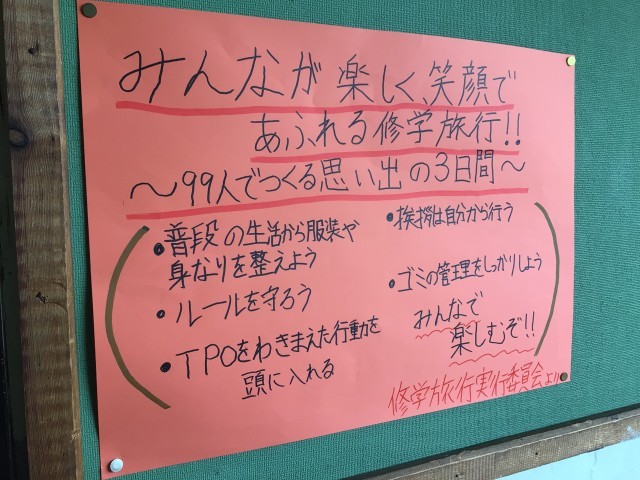 みんなが楽しく、笑顔で
あふれる修学旅行!!
～99人でつくる思い出の3日間～
・普段の生活から服装や
身なりを整えよう
・ルールを守ろう
・TPOをわきまえた行動を
頭に入れる
・挨拶は自分から行う
・ゴミの管理をしっかりしよう
みんなで
楽しむぞ!!
修学旅行実行委員会より